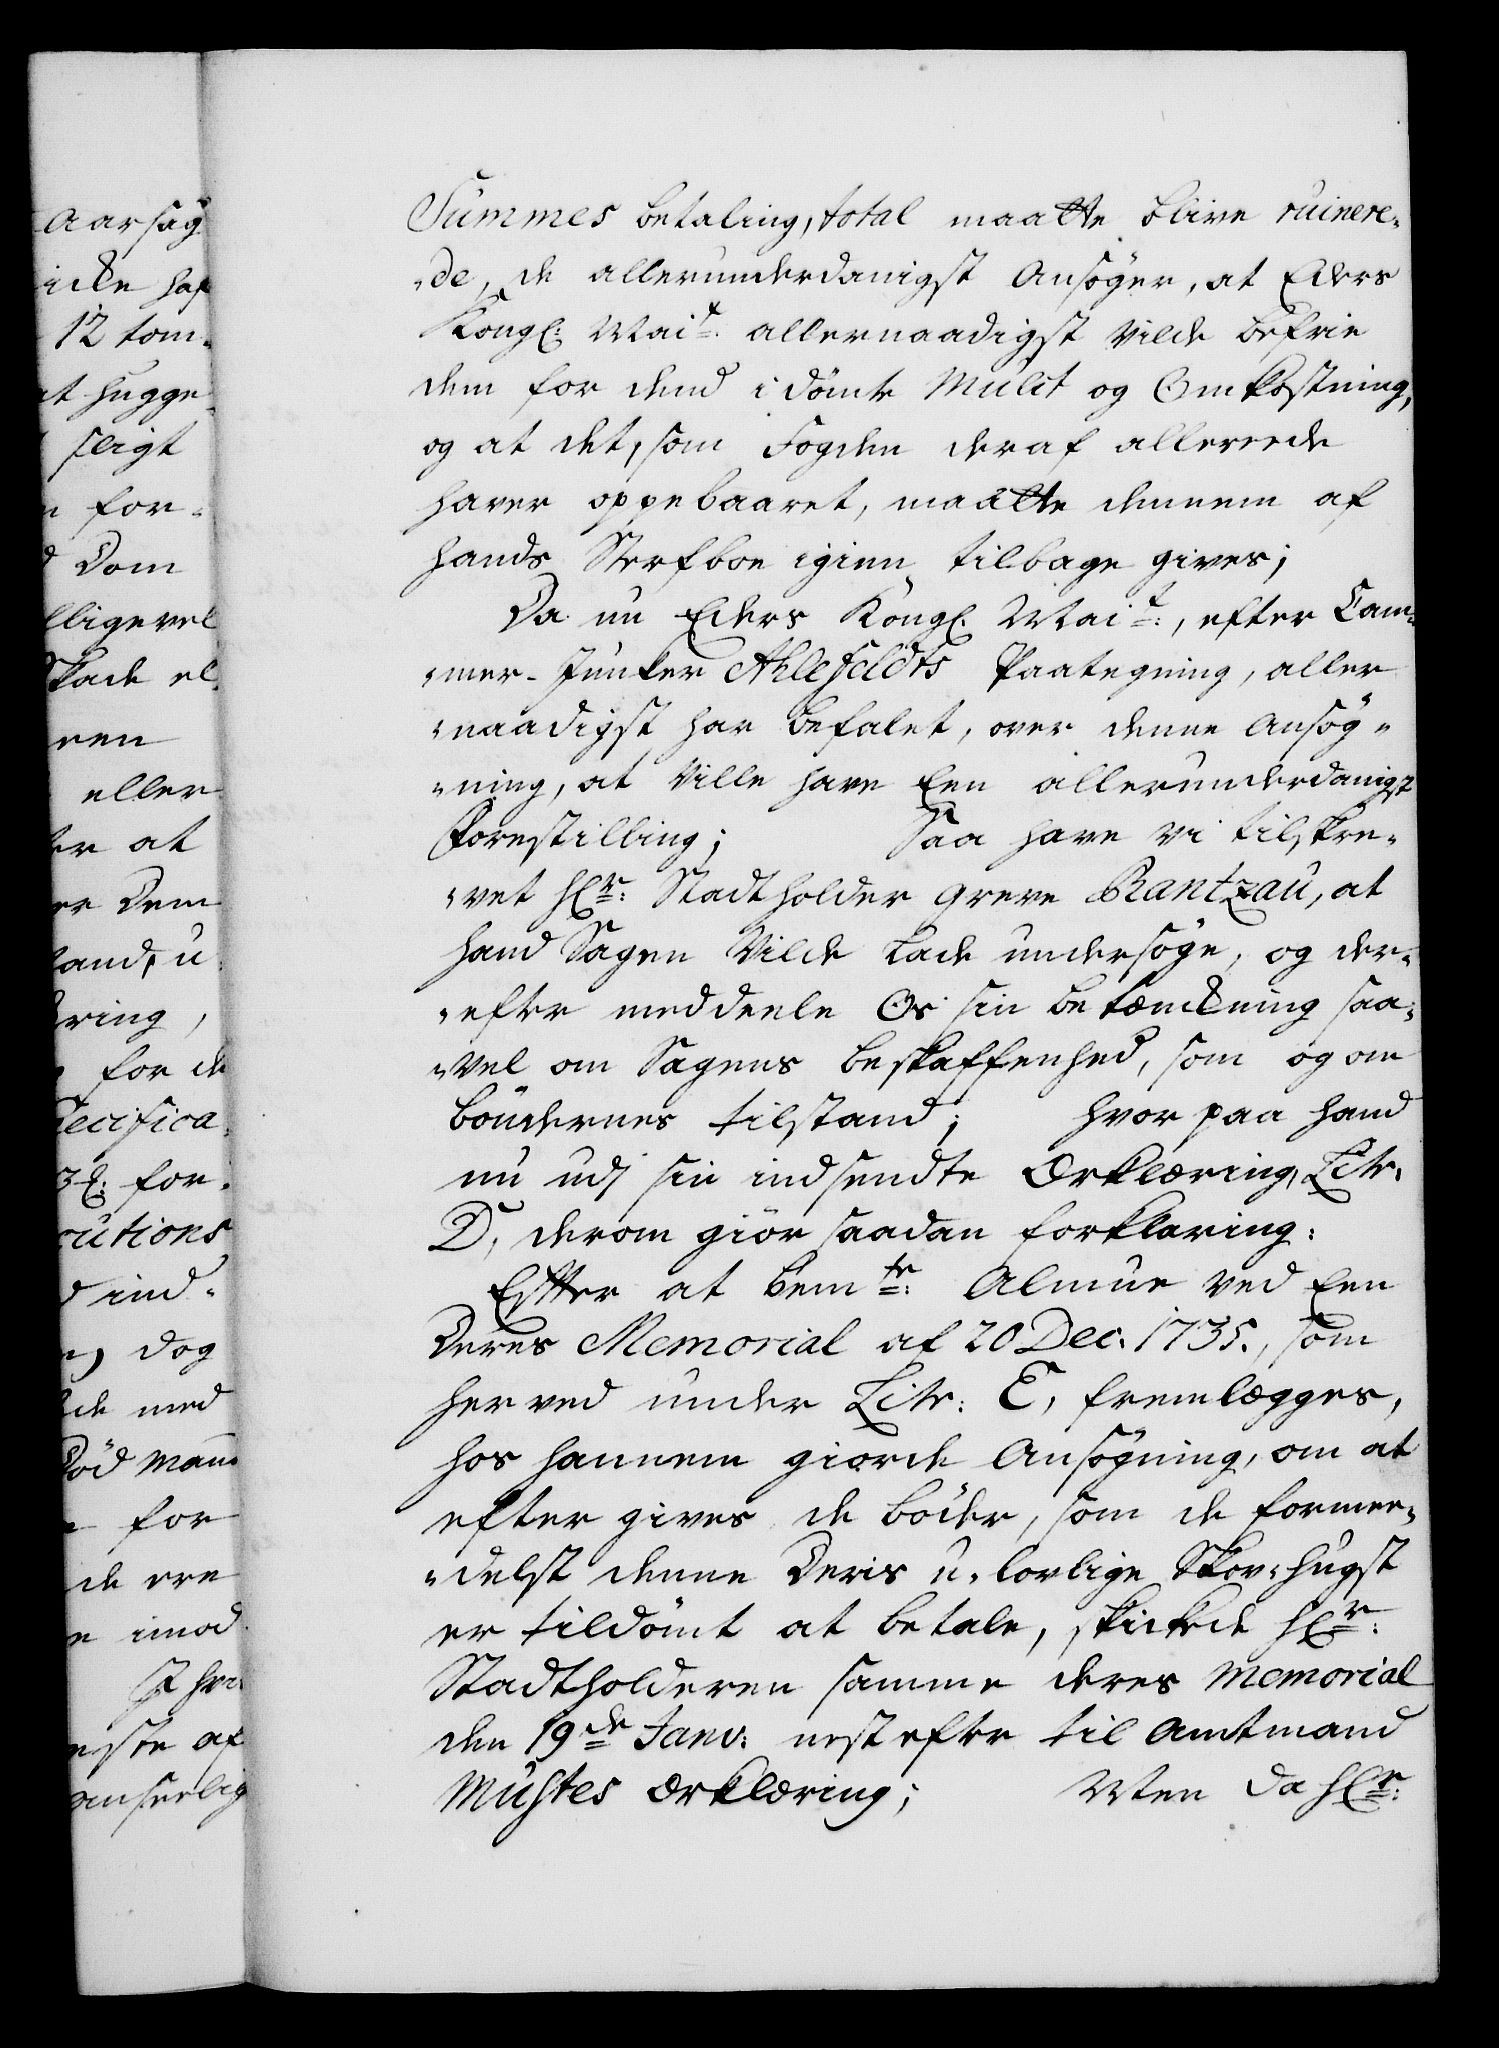 Aarsag
icke haf
12 tom-
at hugge
sligt
for-
Dom
lligevel
Skade el.
ren
eller
er at
er Dem
land, u
dring,
for de
pecifica-
3 β: for-
cutions
d ind-
dog
de med
Död Mand
for
de ere
imod
este af
anseelig
Summes betaling, total maatte blive ruinere-
-de, de allerunderdanigst Ansøger, at Eders
Kongl: Mai:t allernaadigst Vilde befrie
dem for dend idömte Mulct og Omkostning,
og at det, som Fogden deraf allereede
haver oppebaaret, maatte dennem af
hands Sterfboe igien tilbage gives;
Da nu Eders Kongl: Mai:t, efter Cam-
-mer-Junker Ahlefeldts Paategning, aller
-naadigst har befalet, over denne Ansøg-
-ning, at Ville have Een allerunderdanigst
Forestilling; Saa have vi tilskre-
-vet Hr: Stadtholder Greve Rantzau, at
hand Sagen Vilde Lade undersøge, og der-
-efter meddeele Os sin betænckning saa-
-vel om Sagens beskaffenhed, som og om
böndernes tilstand; hvor paa hand
nu udj sin indsendte Erklæring, Litr.
D, derom giör saadan forklaring:
Efter at bemte: Almue ved Een
Deres Memorial af 20 Dec: 1735., som
herved under Litr: E, fremlægges,
hos hannem giorde Ansøgning, om at
efter gives de böder, som de formee-
-delst denne Deris u-lovlige Skov-hugst
er tildömt at betale, skickede Hr:
Stadtholderen samme deres Memorial
den 19de Janv: nest efter til Amtmand
Muhtes Erklæring; Men da Hr: